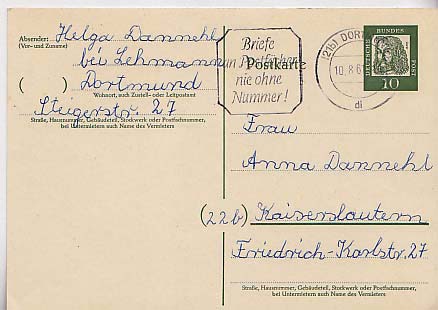 Absender:
(Vor- und Zuname)
Helga Dannehl
bei Lehmann
( ) Dortmund
Wohnort, auch Zustell- oder Leitpostamt
Steigerstr. 27
Straße, Hausnummer, Gebäudeteil, Stockwerk oder Postfachnummer,
bei Untermietern auch Name des Vermieters
Briefe
an Postfächer
nie ohne
Nummer!
Postkarte
(21b) DORT
10.8.6
di
DEUTSCHE BUNDESPOST
10
Frau
Anna Dannehl
(22b) Kaiserslautern
Friedrich-Karlstr. 27
Straße, Hausnummer, Gebäudeteil, Stockwerk oder Postfachnummer,
bei Untermietern auch Name des Vermieters